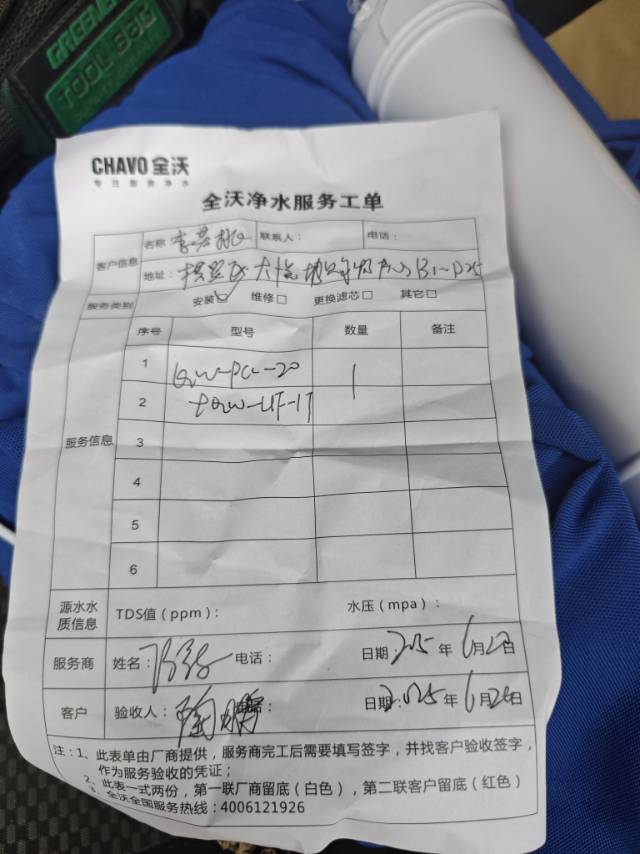 GREENER
TOOL BAG
CHAVO 全沃
专注厨房净水
全沃净水服务工单
客户信息
名称 李 联系人： 电话：
地址： B1-D25
服务类别 安装☑ 维修□ 更换滤芯□ 其它□
服务信息
序号 型号 数量 备注
1 QW-PCL-20 1
2 +QW-UF-1T
3
4
5
6
源水水质信息 TDS值（ppm）： 水压（mpa）：
服务商 姓名： 电话： 日期 2025 年 6月 日
客户 验收人：陶 鹏 电话： 日期：2025 年 6月 日
注：1、此表单由厂商提供，服务商完工后需要填写签字，并找客户验收签字，
作为服务验收的凭证；
2、此表一式两份，第一联厂商留底（白色），第二联客户留底（红色）
3、全沃全国服务热线：4006121926